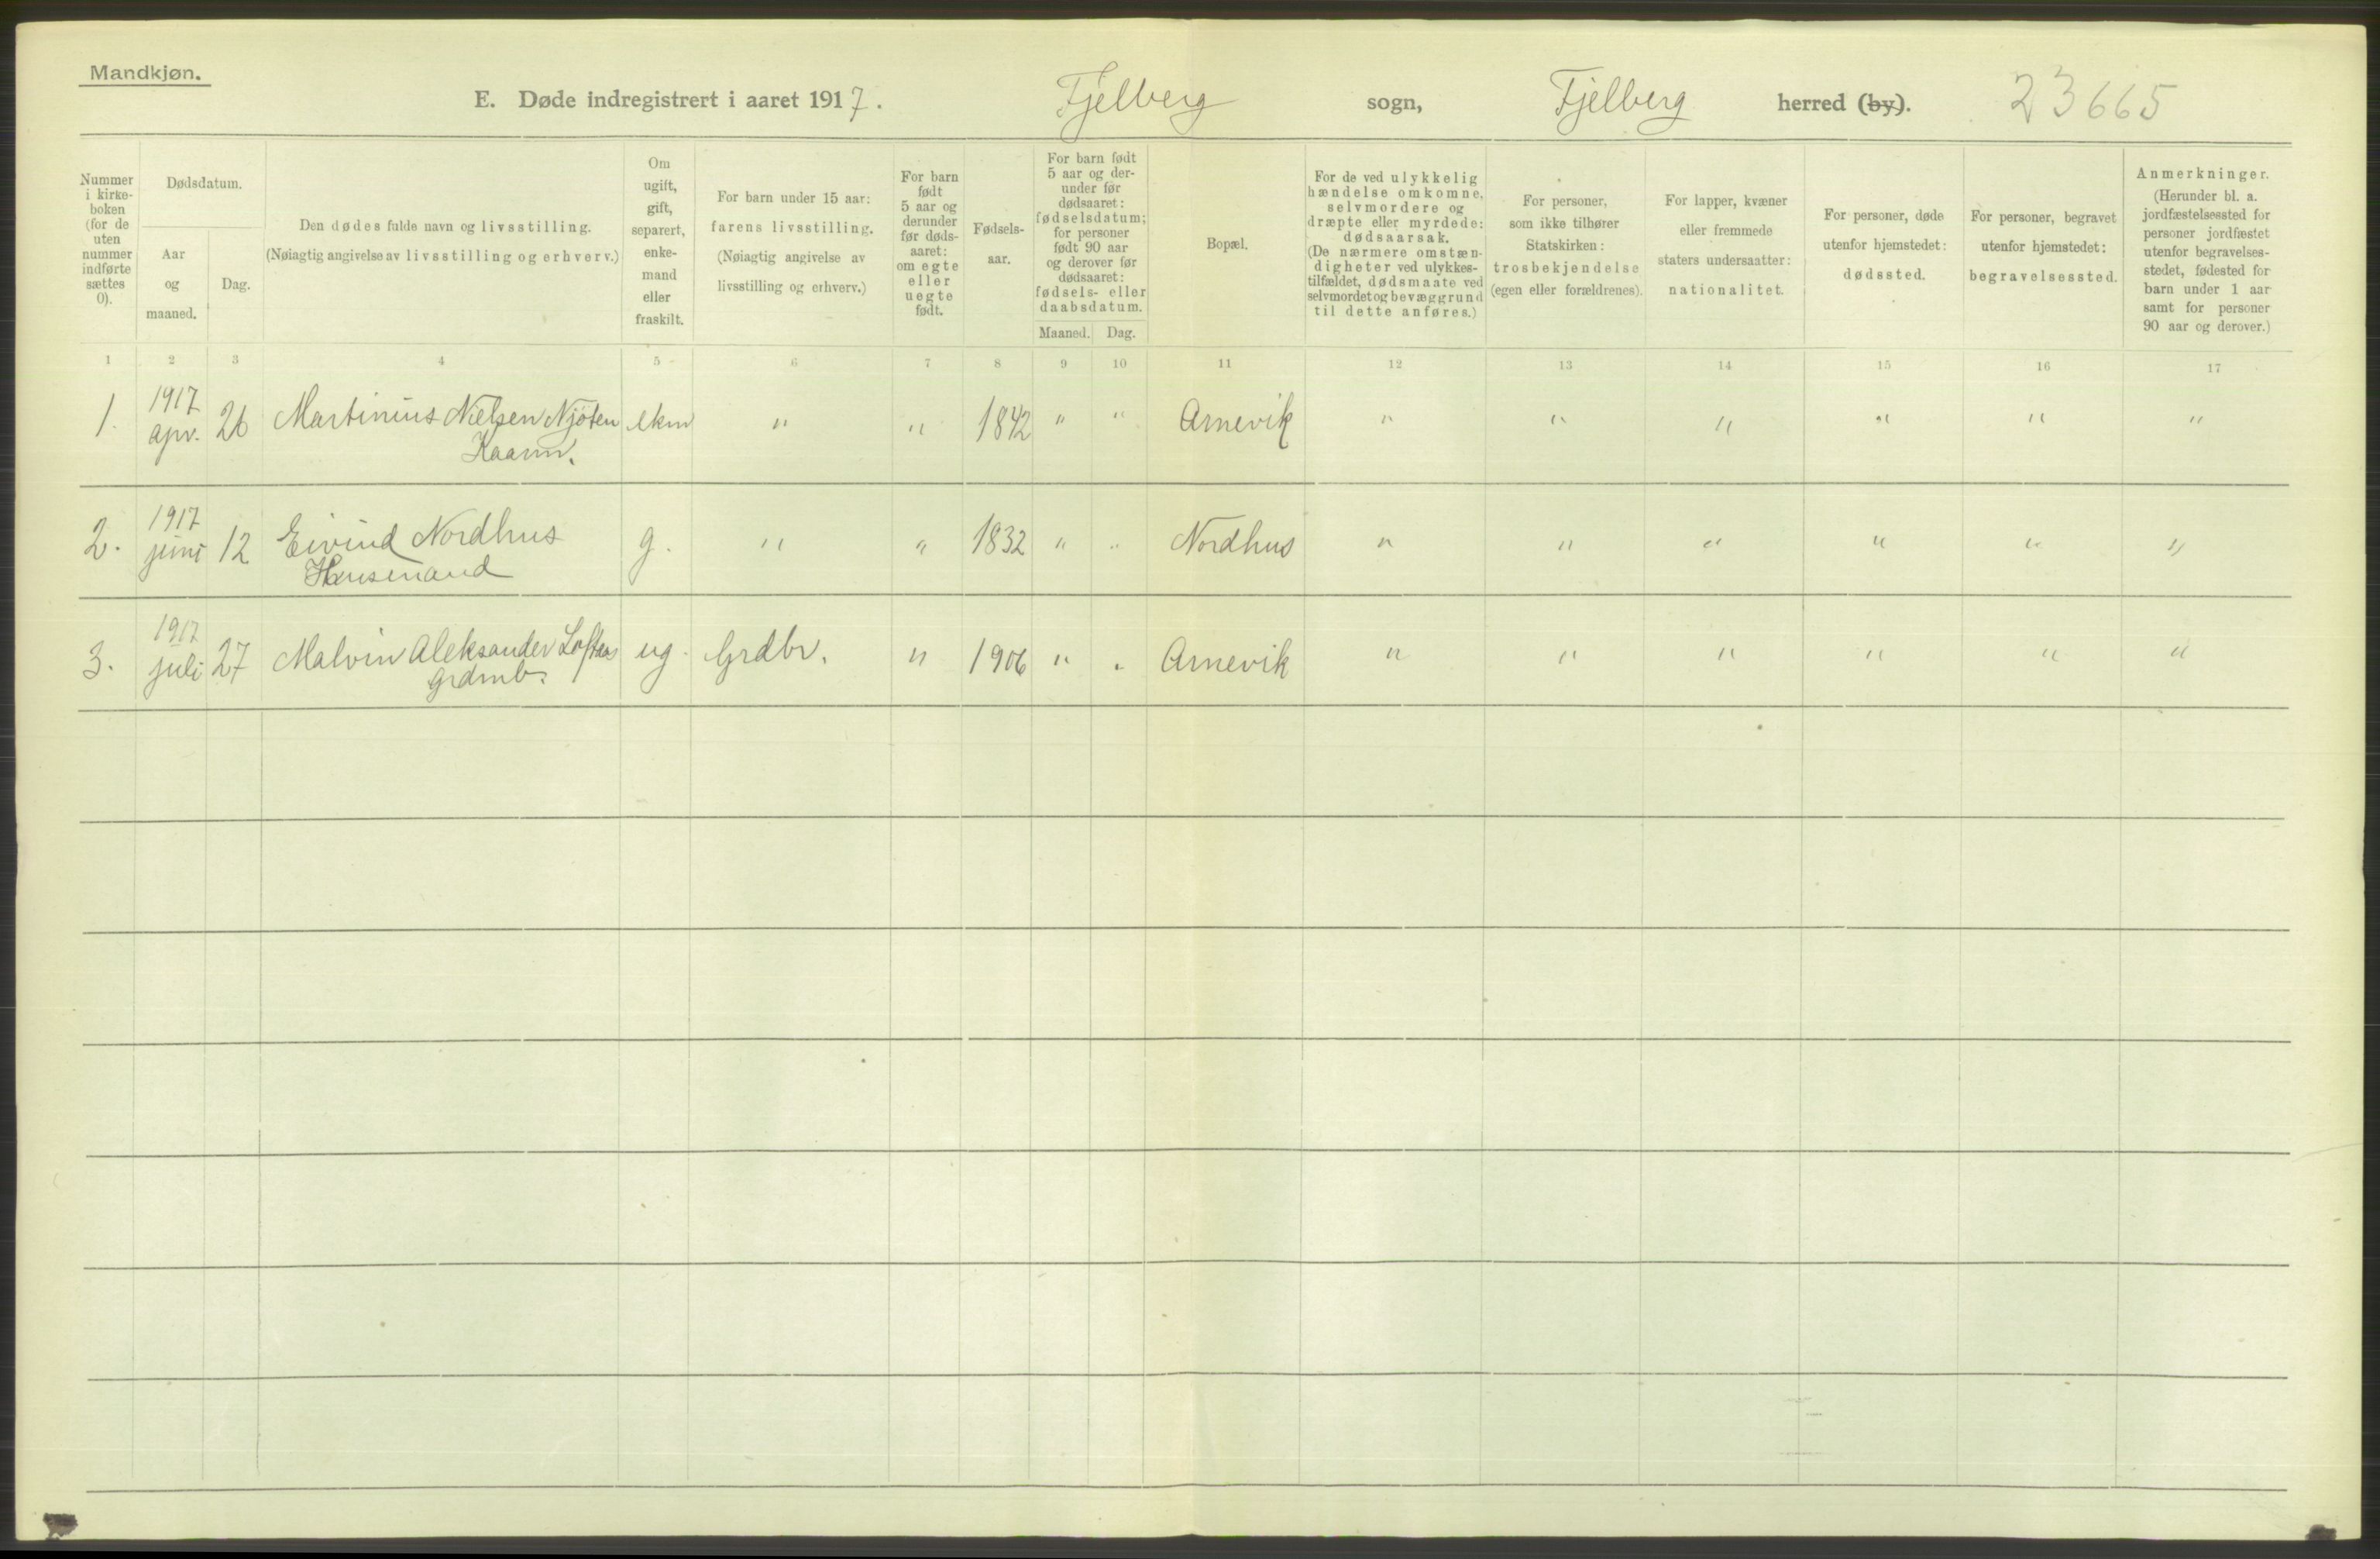 Mandkjøn.
E. Døde indregistrert i aaret 1917. Fjelberg sogn, Fjelberg herred (by). 23665
Nummer i kirke-boken (for de uten nummer indførte sættes 0).
Dødsdatum.
Aar og maaned.
Dag.
Den dødes fulde navn og livsstilling.
(Nøiagtig angivelse av livsstilling og erhverv.)
Om ugift, gift, separert, enke-mand eller fraskilt.
For barn under 15 aar: farens livsstilling. (Nøiagtig angivelse av livsstilling og erhverv.)
For barn født 5 aar og derunder før døds-aaret: om egte eller uegte født.
Fødsels-aar.
For barn født 5 aar og der-under før dødsaaret: fødselsdatum; for personer født 90 aar og derover før dødsaaret: fødsels- eller daabsdatum.
Maaned. Dag.
Bopæl.
For de ved ulykkelig hændelse omkomne, selvmordere og dræpte eller myrdede: dødsaarsak. (De nærmere omstæn-digheter ved ulykkes-tilfældet, dødsmaate ved selvmordet og bevæggrund til dette anføres.)
For personer, som ikke tilhører Statskirken: trosbekjendelse (egen eller forældrenes).
For lapper, kvæner eller fremmede staters undersaatter: nationalitet.
For personer, døde utenfor hjemstedet: dødssted.
For personer, begravet utenfor hjemstedet: begravelsessted.
Anmerkninger. (Herunder bl. a. jordfæstelsessted for personer jordfæstet utenfor begravelses-stedet, fødested for barn under 1 aar samt for personer 90 aar og derover.)
1 2 3 4 5 6 7 8 9 10 11 12 13 14 15 16 17
1. 1917 apr. 26 Martinius Nielsen Njøten ekm " " 1842 " " Arnevik " " " " " "
Kaarm.
2. 1917 juni 12 Eivind Nordhus g. " " 1832 " " Nordhus " " " " " "
Husmand
3. 1917 juli 27 Malvin Aleksander Loftaas ug. Grdbr. " 1906 " " Arnevik " " " " " "